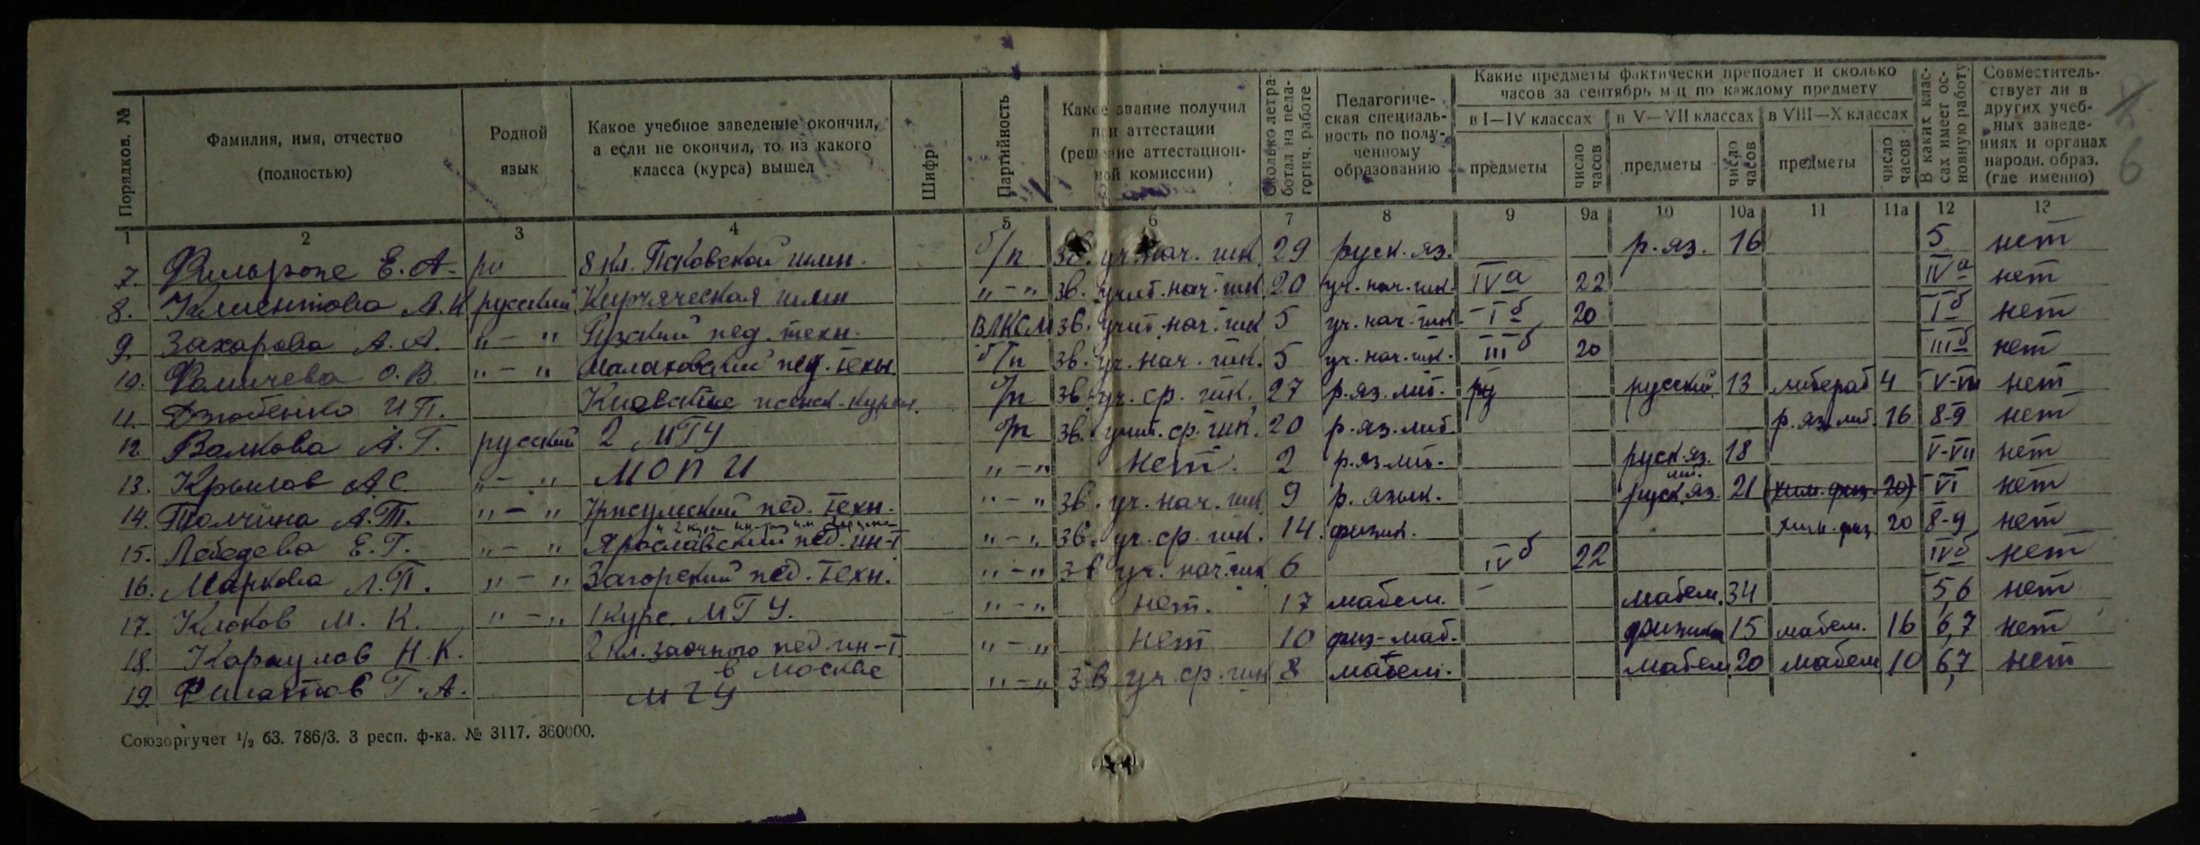 Порядков. №
Фамилия, имя, отчество
(полностью)
Родной
язык
Какое учебное заведение окончил,
а если не окончил, то из какого
класса (курса) вышел
Шифр
Партийность
Какое звание получил
при аттестации
(решение аттестацион-
ной комиссии)
Сколько лет ра-
ботал на педа-
гогич. работе
Педагогиче-
ская специаль-
ность по полу-
ченному
образованию
Какие предметы фактически преподает и сколько
часов за сентябрь м-ц по каждому предмету
в I—IV классах
в V—VII классах
в VIII—X классах
предметы
число
часов
предметы
число
часов
предметы
число
часов
В каких клас-
сах имеет ос-
новную работу
Совместитель-
ствует ли в
других учеб-
ных заведе-
ниях и органах
народн. образ.
(где именно)
6
1 2 3 4 5 6 7 8 9 9а 10 10а 11 11а 12 13
7. Е. А. ру 8 кл. Псковской гимн. б/п зв. уч. нач. шк. 29 руск. яз. р. яз. 16 5 нет
8. Климентова А. И русский гимн „ – „ зв. учит. нач. шк. 20 уч. нач. шк. IVа 22 IVа нет
9. Захарова А. А. „ – „ Рузский пед. техн. ВЛКСМ зв. учит. нач. шк 5 уч. нач. шк. Iб 20 Iб нет
10. Фомичева О. В. „ – „ Малаховский пед. техн. б/п зв. уч. нач. шк. 5 уч. нач. шк. IIIб 20 IIIб нет
11. Дзюбенко И П. Киевские б/п зв. уч. ср. шк. 27 р. яз. лит. ру русский 13 литерат 4 V-VIII нет
12. Волкова А. Г. русский 2 МГУ б/п зв. учит. ср. шк. 20 р. яз. лит р. яз. лит. 16 8-9 нет
13. Крылов А С „ – „ МОПИ „ – „ нет. 2 р. яз. лит. руск. яз. 18 V-VII нет
лит.
14. Толчина А. Т. „ – „ пед. техн. „ – „ зв. уч. нач. шк. 9 р. язык. руск. яз. 21 (хим. физ. 20) VI нет
15. Лебедева Е. Г. „ – „ Ярославский пед. ин-т „ – „ зв. уч. ср. шк. 14. физик. хим. физ 20 8-9 нет
16. Маркова Л. П. „ – „ Загорский пед. техн. „ – „ зв уч. нач. шк 6 IVб 22 IVб нет
17. Клоков М. К. „ – „ 1 курс МГУ. „ – „ нет. 17 матем. матем. 34 5,6 нет
18. Караулов Н. К. 2 кл. заочного пед ин-т „ – „ нет 10 физ-мат. физика 15 матем. 16 6,7 нет
в Москве
19. Филатов Г. А. МГУ „ – „ зв уч. ср. шк 8 матем. матем 20 матем 10 6,7 нет
Союзоргучет ½ 63. 786/3. 3 респ. ф-ка. № 3117. 360000.